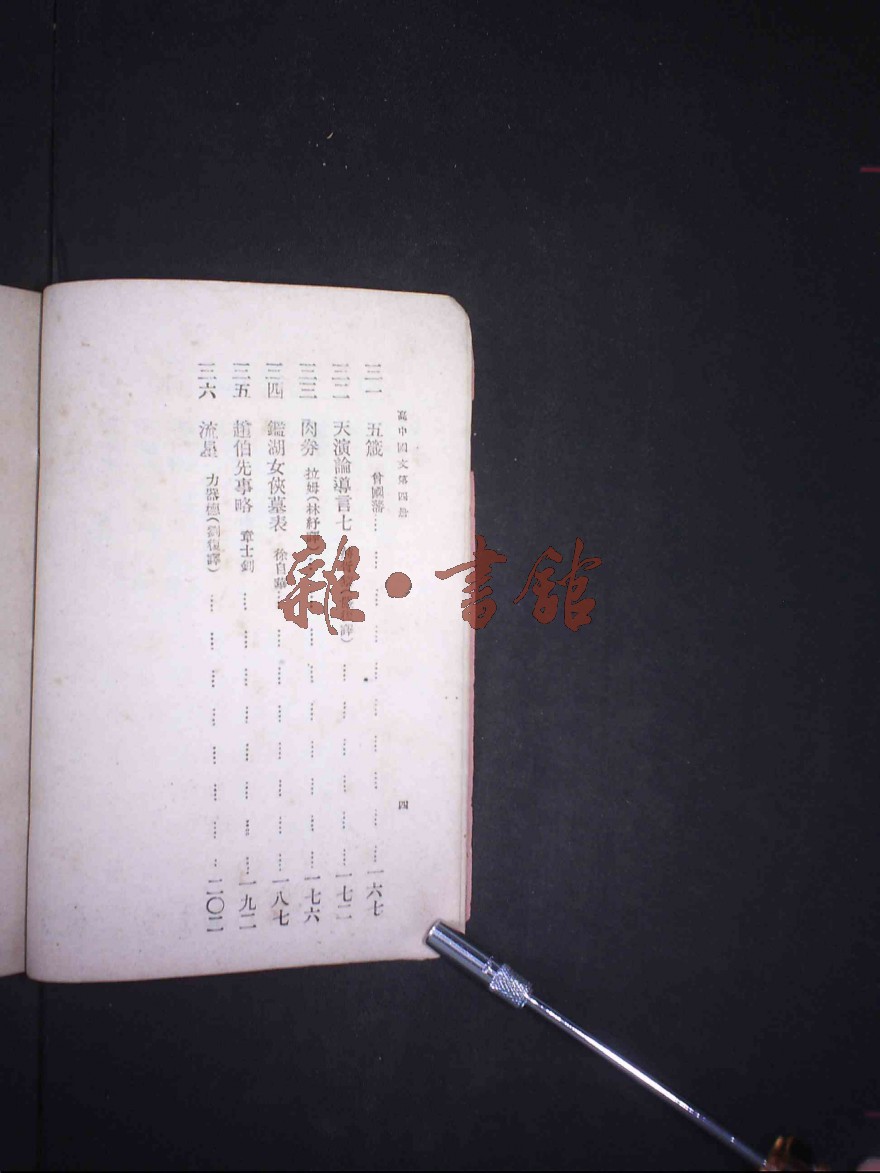 高中國文第四册
四
三一 五箴 曾國藩 一六七
三二 天演論導言七 譯) 一七二
三三 肉券 拉姆(林紓譯 一七六
三四 鑑湖女俠墓表 徐自華 一八七
三五 趙伯先事略 章士釗 一九二
三六 流星 力器德(劉復譯) 二〇二
雜·書館